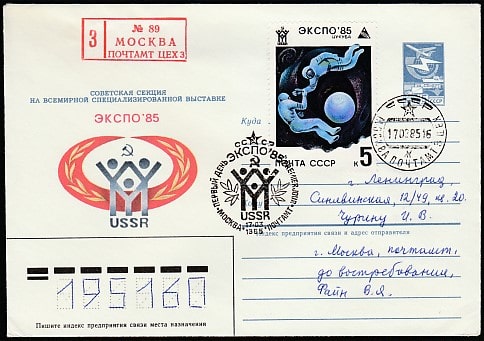 № 89
З МОСКВА
ПОЧТАМТ ЦЕХ 3
СОВЕТСКАЯ СЕКЦИЯ
НА ВСЕМИРНОЙ СПЕЦИАЛИЗИРОВАННОЙ ВЫСТАВКЕ
ЭКСПО'85
USSR
ЭКСПО'85
ЦУКУБА
ПОЧТА СССР
К 5
СССР
17038516
МОСКВА ПОЧТАМТ
Куда
ПЕРВЫЙ ДЕНЬ
ЭКСПО'85
USSR
17·03
1985
МОСКВА ПОЧТАМТ
г. Ленинград,
Синявинская, 12/49, кв. 20.
Чурину И. В.
Индекс предприятия связи и адрес отправителя
г. Москва, почтамт,
до востребования,
Файн В.Я.
195160
Пишите индекс предприятия связи места назначения